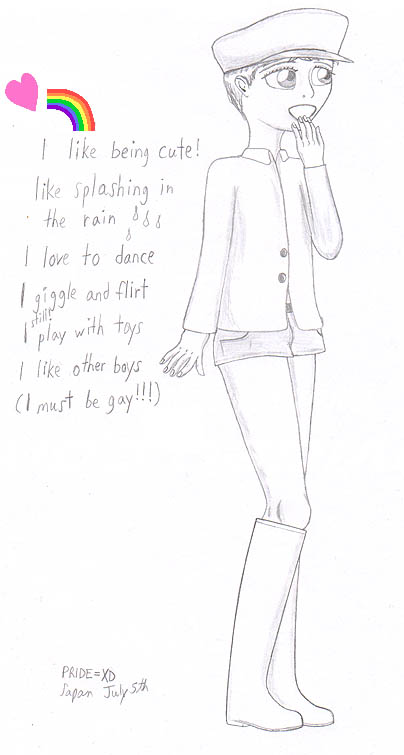 I like being cute!
like splashing in
the rain
I love to dance
I giggle and flirt
still!
I play with toys
I like other boys
(I must be gay!!!)
PRIDE=XD
Japan July 5th